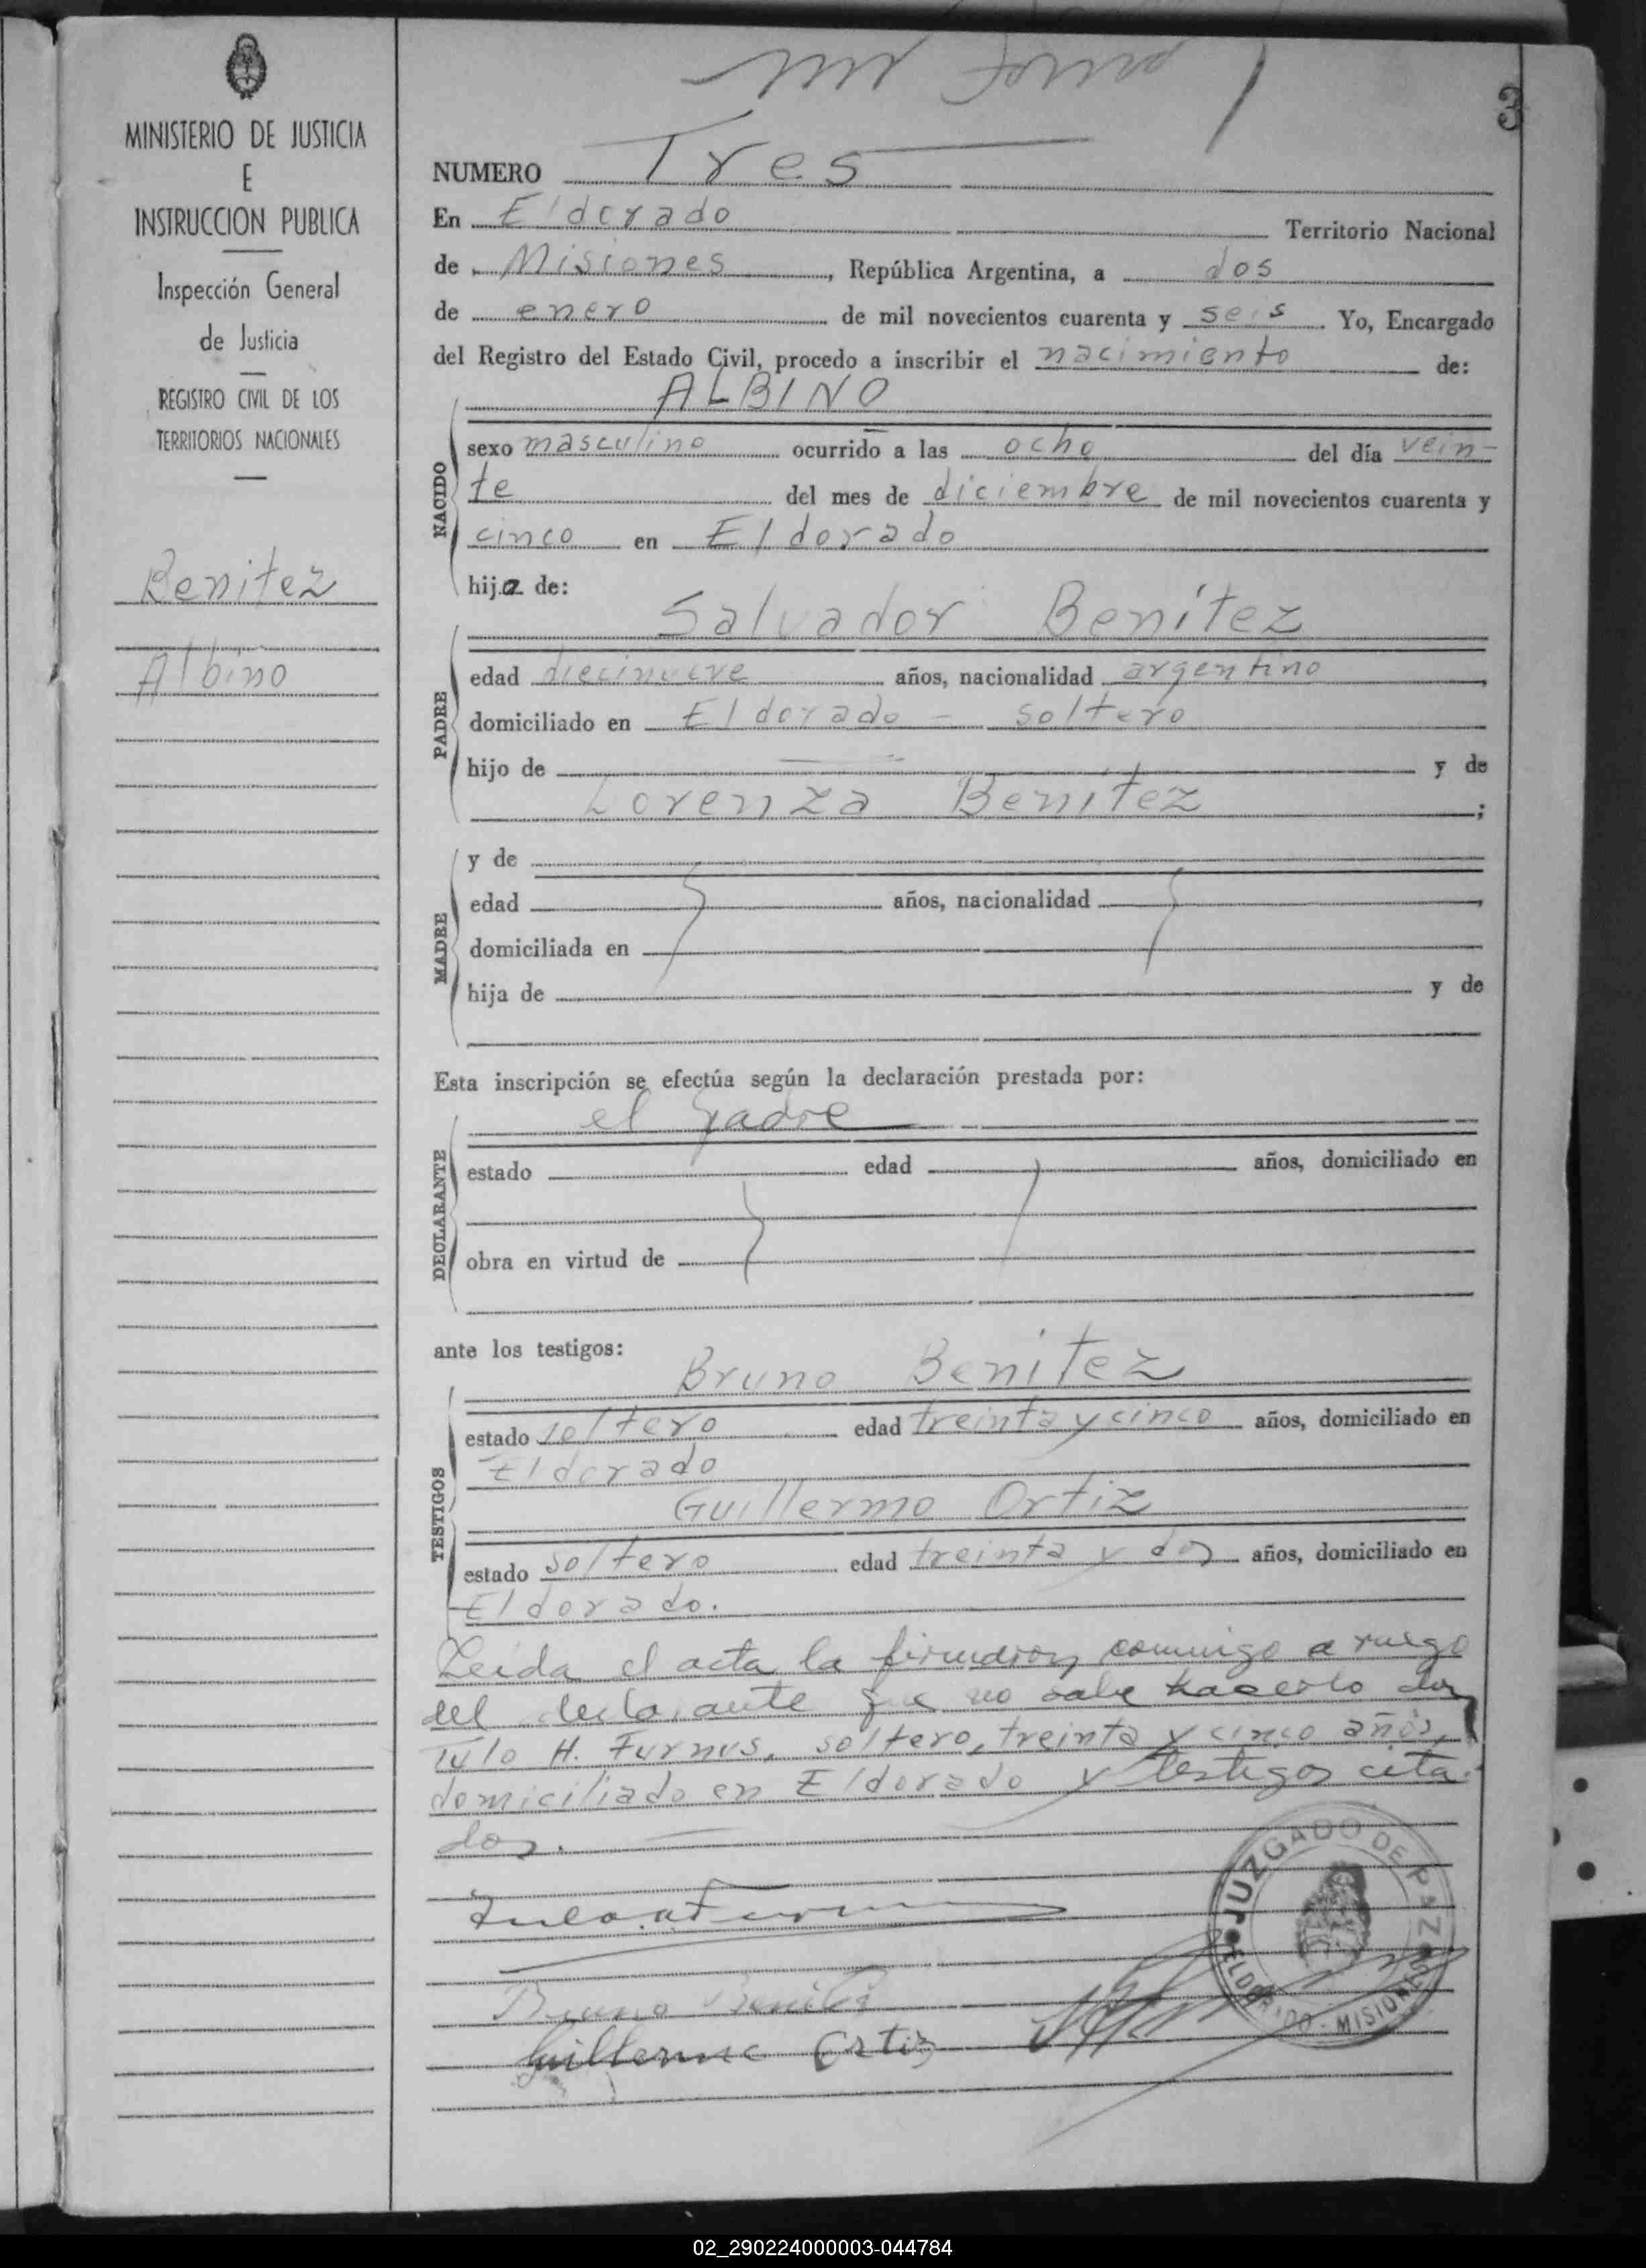 3
MINISTERIO DE JUSTICIA
E
INSTRUCCION PUBLICA
Inspección General
de Justicia
REGISTRO CIVIL DE LOS
TERRITORIOS NACIONALES
Benitez
Albino
NUMERO Tres
En Eldorado Territorio Nacional
de Misiones, República Argentina, a dos
de enero de mil novecientos cuarenta y seis. Yo, Encargado
del Registro del Estado Civil, procedo a inscribir el nacimiento de:
ALBINO
NACIDO
sexo masculino ocurrido a las ocho del día vein-
te del mes de diciembre de mil novecientos cuarenta y
cinco en Eldorado
hijo de:
Salvador Benítez
PADRE
edad diecinueve años, nacionalidad argentino,
domiciliado en Eldorado - soltero
hijo de y de
Lorenza Benítez;
MADRE
y de
edad años, nacionalidad,
domiciliada en
hija de y de
Esta inscripción se efectúa según la declaración prestada por:
el padre
DECLARANTE
estado edad años, domiciliado en
obra en virtud de
ante los testigos:
Bruno Benítez
TESTIGOS
estado soltero edad treinta y cinco años, domiciliado en
Eldorado
Guillermo Ortiz
estado soltero edad treinta y dos años, domiciliado en
Eldorado.
Leida el acta la firmaron conmigo a ruego
del declarante que no sabe hacerlo don
Tulo H. Furnus, soltero, treinta y cinco años,
domiciliado en Eldorado y testigos cita-
dos.
Bruno Benitez
Guillermo Ortiz
JUZGADO DE PAZ
ELDORADO - MISIONES
02_290224000003-044784